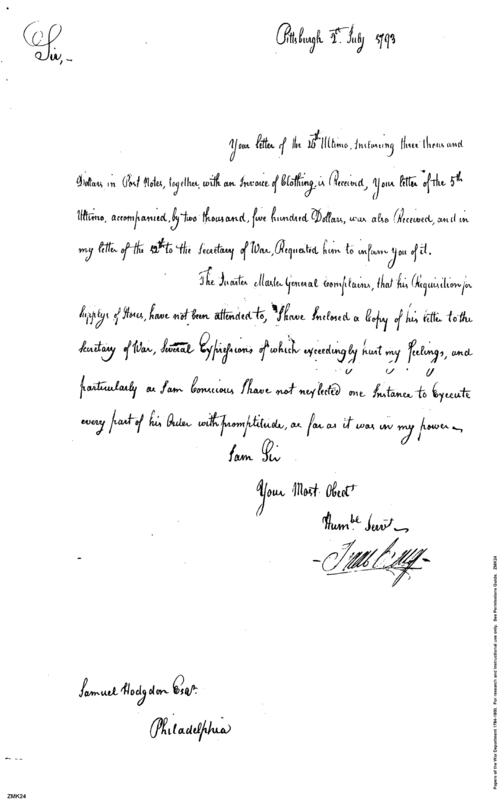 Pittsburgh July 1793
Sir,
Your letter of the Ultimo, Inclosing three thousand
Dollars in Post Notes, together, with an Invoice of Clothing, is Received, Your letter of the 5th
Ultimo, accompanied, by two thousand, five hundred Dollars, was also Received, and in
my letter of the to the Secretary of War, Requested him to inform You of it.
The Quarter Master General complains, that his Requisition for
Supplys of Stores, have not been attended to, I have Inclosed a Copy of his letter to the
Secretary of War, Several Expressions of which exceedingly hurt my Feelings, and
particularly as I am Conscious I have not neglected one Instance to Execute
every part of his Order with promptitude, as far as it was in my power
I am Sir
Your Most Obedt
Humble Servt
Isaac Craig
Samuel Hodgdon Esqr.
Philadelphia
ZMK24
Papers of the War Department 1784-1800. For research and instructional use only. See Permissions Guide. ZMK24